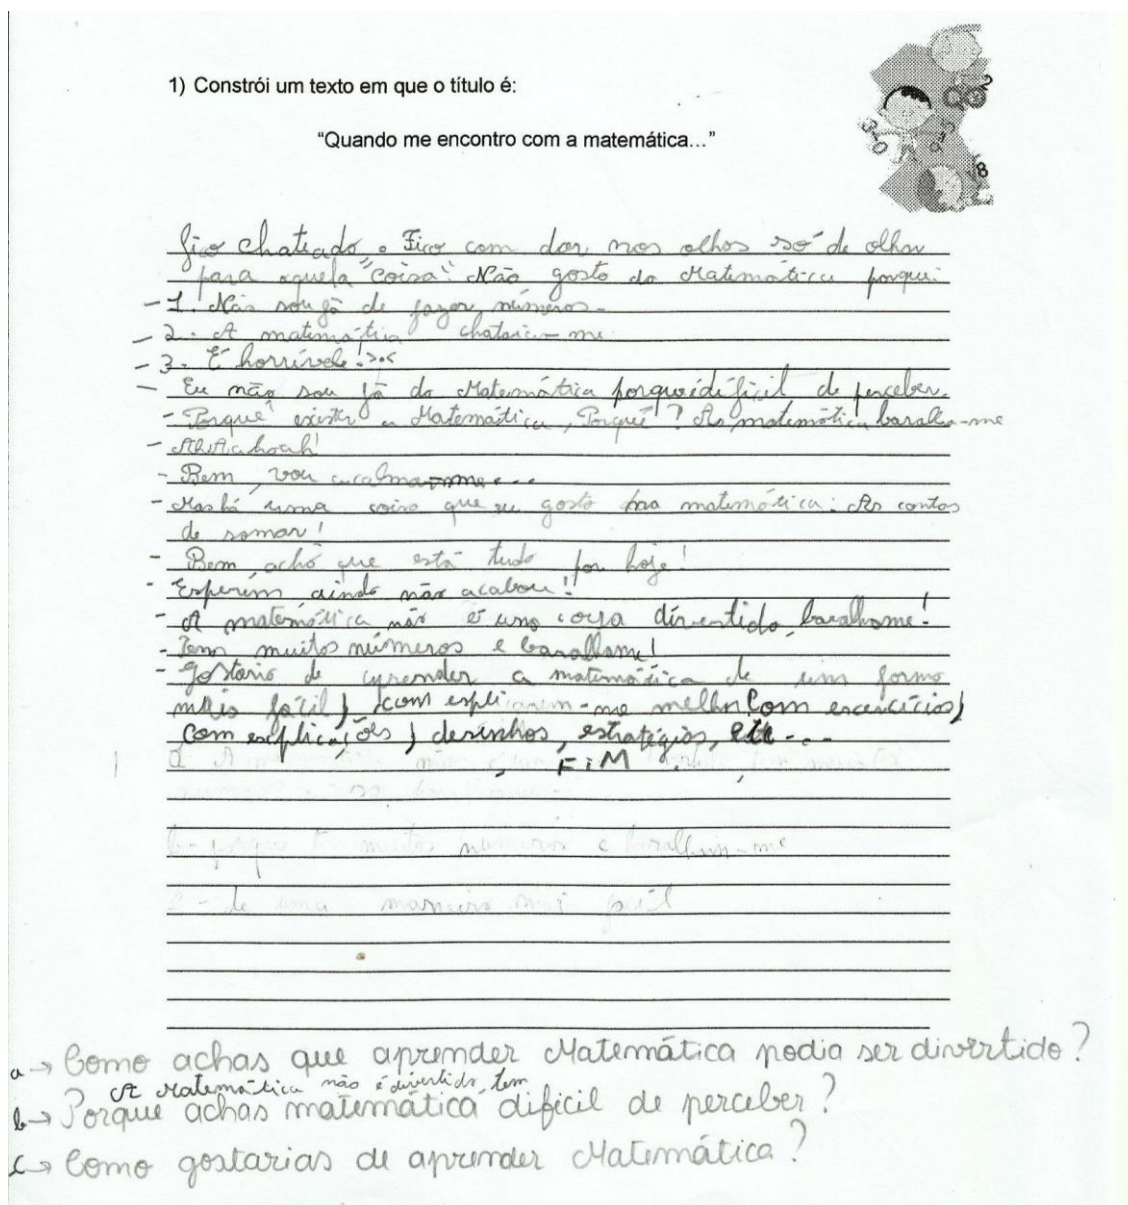 1) Constrói um texto em que o título é:
“Quando me encontro com a matemática...”
fico chateado. Fico com dor nos olhos só de olhar
para aquela "coisa". Não gosto da Matemática porque:
- 1. Não sou fã de fazer números.
- 2. A matemática chateia-me
- 3. É horrívele! >.<
- Eu não sou fã da Matemática porque é difícil de perceber.
- Porquê existe a Matemática, Porquê? As matemática baralha-me
-
- Bem, vou acalma-me...
- Mas há uma coisa que eu gosto na matemática: As contas
de somar!
- Bem, acho que está tudo por hoje!
- Esperem ainda não acabou!!
- A matemática não é uma coisa divertida, baralhame!
- Tem muitos números e baralhame!
- Gostaria de aprender a matemática de um forma
mais fácil, com explicarem-me melhor Com escercícios,
Com esplicações, desinhos, estratégias, etc...
FiM
b- porque tem muitos números e baralham-me
c - de uma maneira mais fácil
a → Como achas que aprender Matemática podia ser divertido?
A Matemática não é divertida, tem
b → Porque achas matemática dificil de perceber?
c → Como gostarias de aprender Matemática?